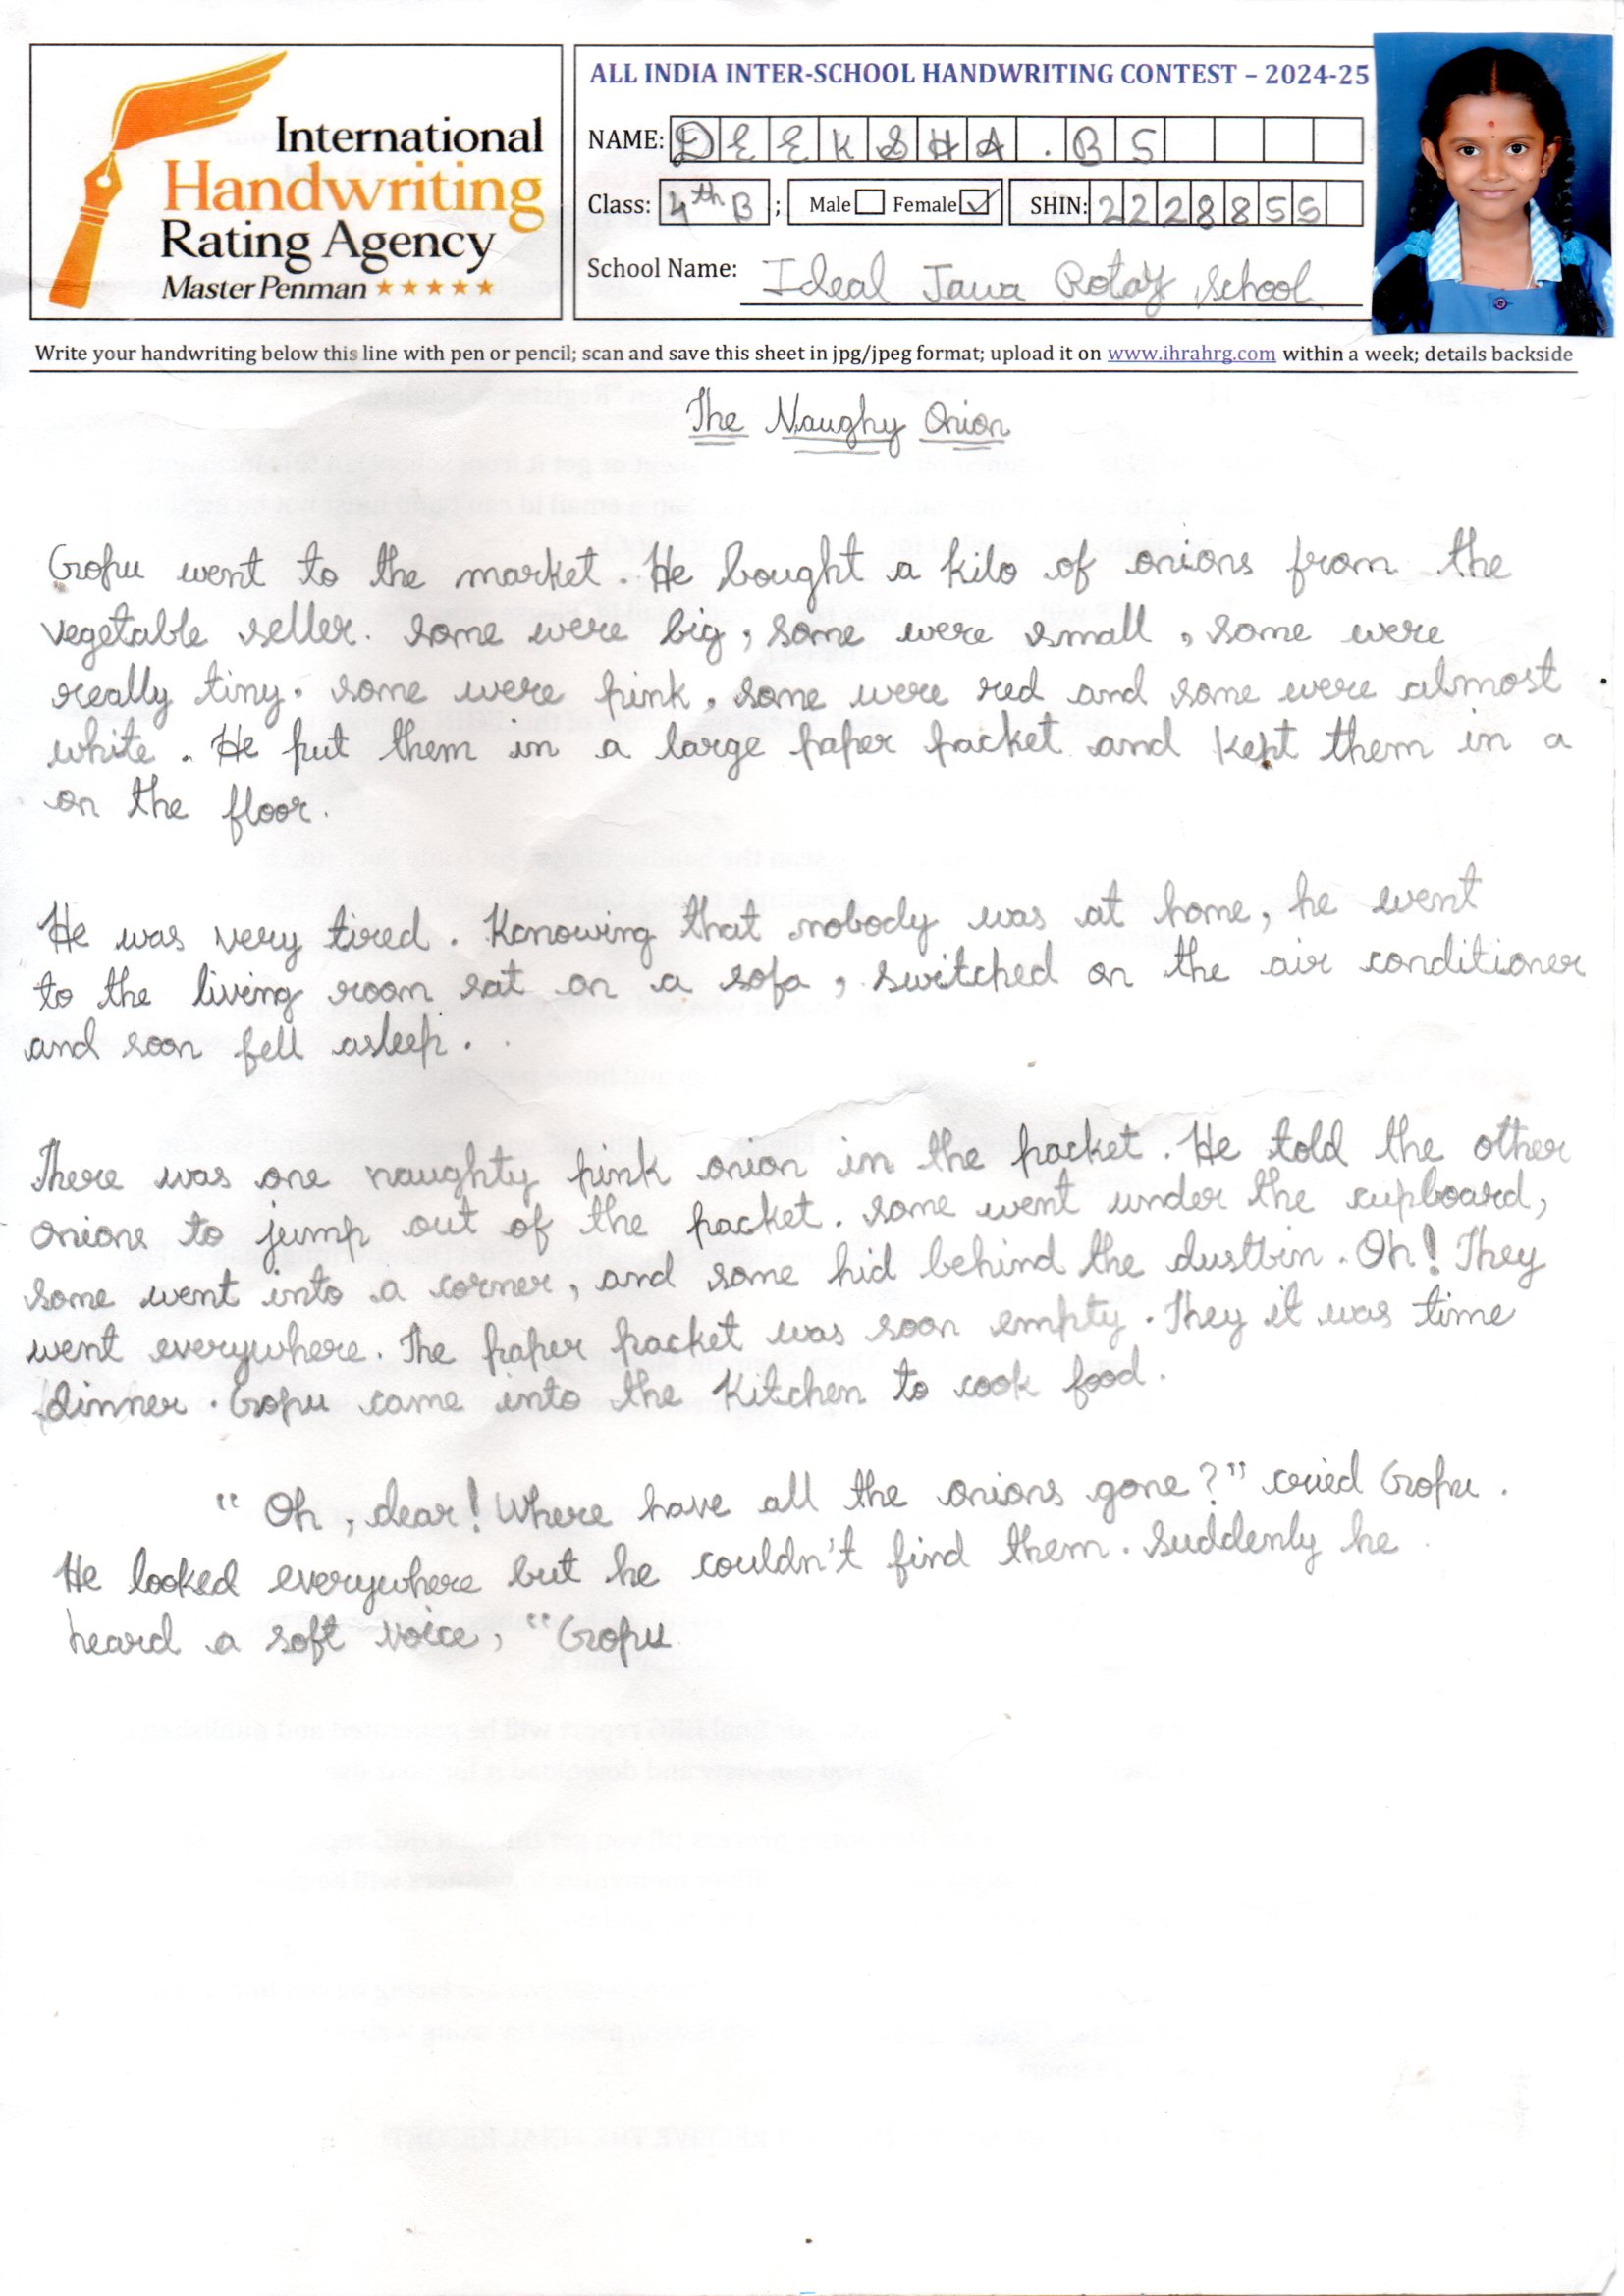 International
Handwriting
Rating Agency
Master Penman
ALL INDIA INTER-SCHOOL HANDWRITING CONTEST – 2024-25
NAME: DEEKSHA . BS
Class: 4th B ; Male Female SHIN: 2228855
School Name: Ideal Jawa Rotay School
Write your handwriting below this line with pen or pencil; scan and save this sheet in jpg/jpeg format; upload it on www.ihrahrg.com within a week; details backside
The Naughy Onion
Gopu went to the market. He bought a kilo of onions from the
vegetable seller. Some were big, some were small, some were
really tiny. some were pink, some were red and some were almost
white. He put them in a large paper packet and kept them in a
on the floor.
He was very tired. Kanowing that nobody was at home, he went
to the living room sat on a sofa, switched on the air conditioner
and soon fell asleep.
There was one naughty pink onion in the packet. He told the other
onions to jump out of the packet. some went under the cupboard,
some went into a corner, and some hid behind the dustbin. Oh! They
went everywhere. The paper packet was soon empty. They it was time
dinner. Gopu came into the kitchen to cook food.
"Oh, dear! Where have all the onions gone?" cried Gopu.
He looked everywhere but he couldn't find them. Suddenly he
heard a soft voice, "Gopu